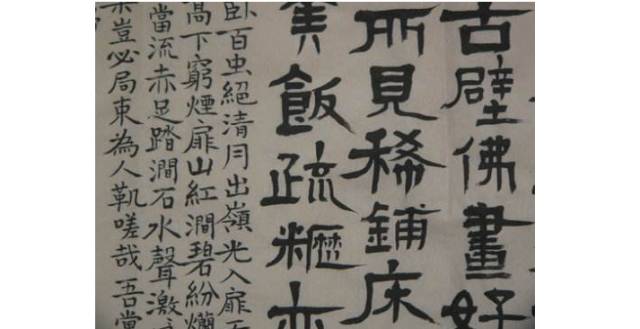 古壁佛畫好
所見稀鋪床
羹飯疏糲亦
臥百虫絕清月出嶺光入扉
高下窮煙扉山紅澗碧紛爛
當流赤足踏澗石水聲激
樂豈必局束為人鞿嗟哉吾黨